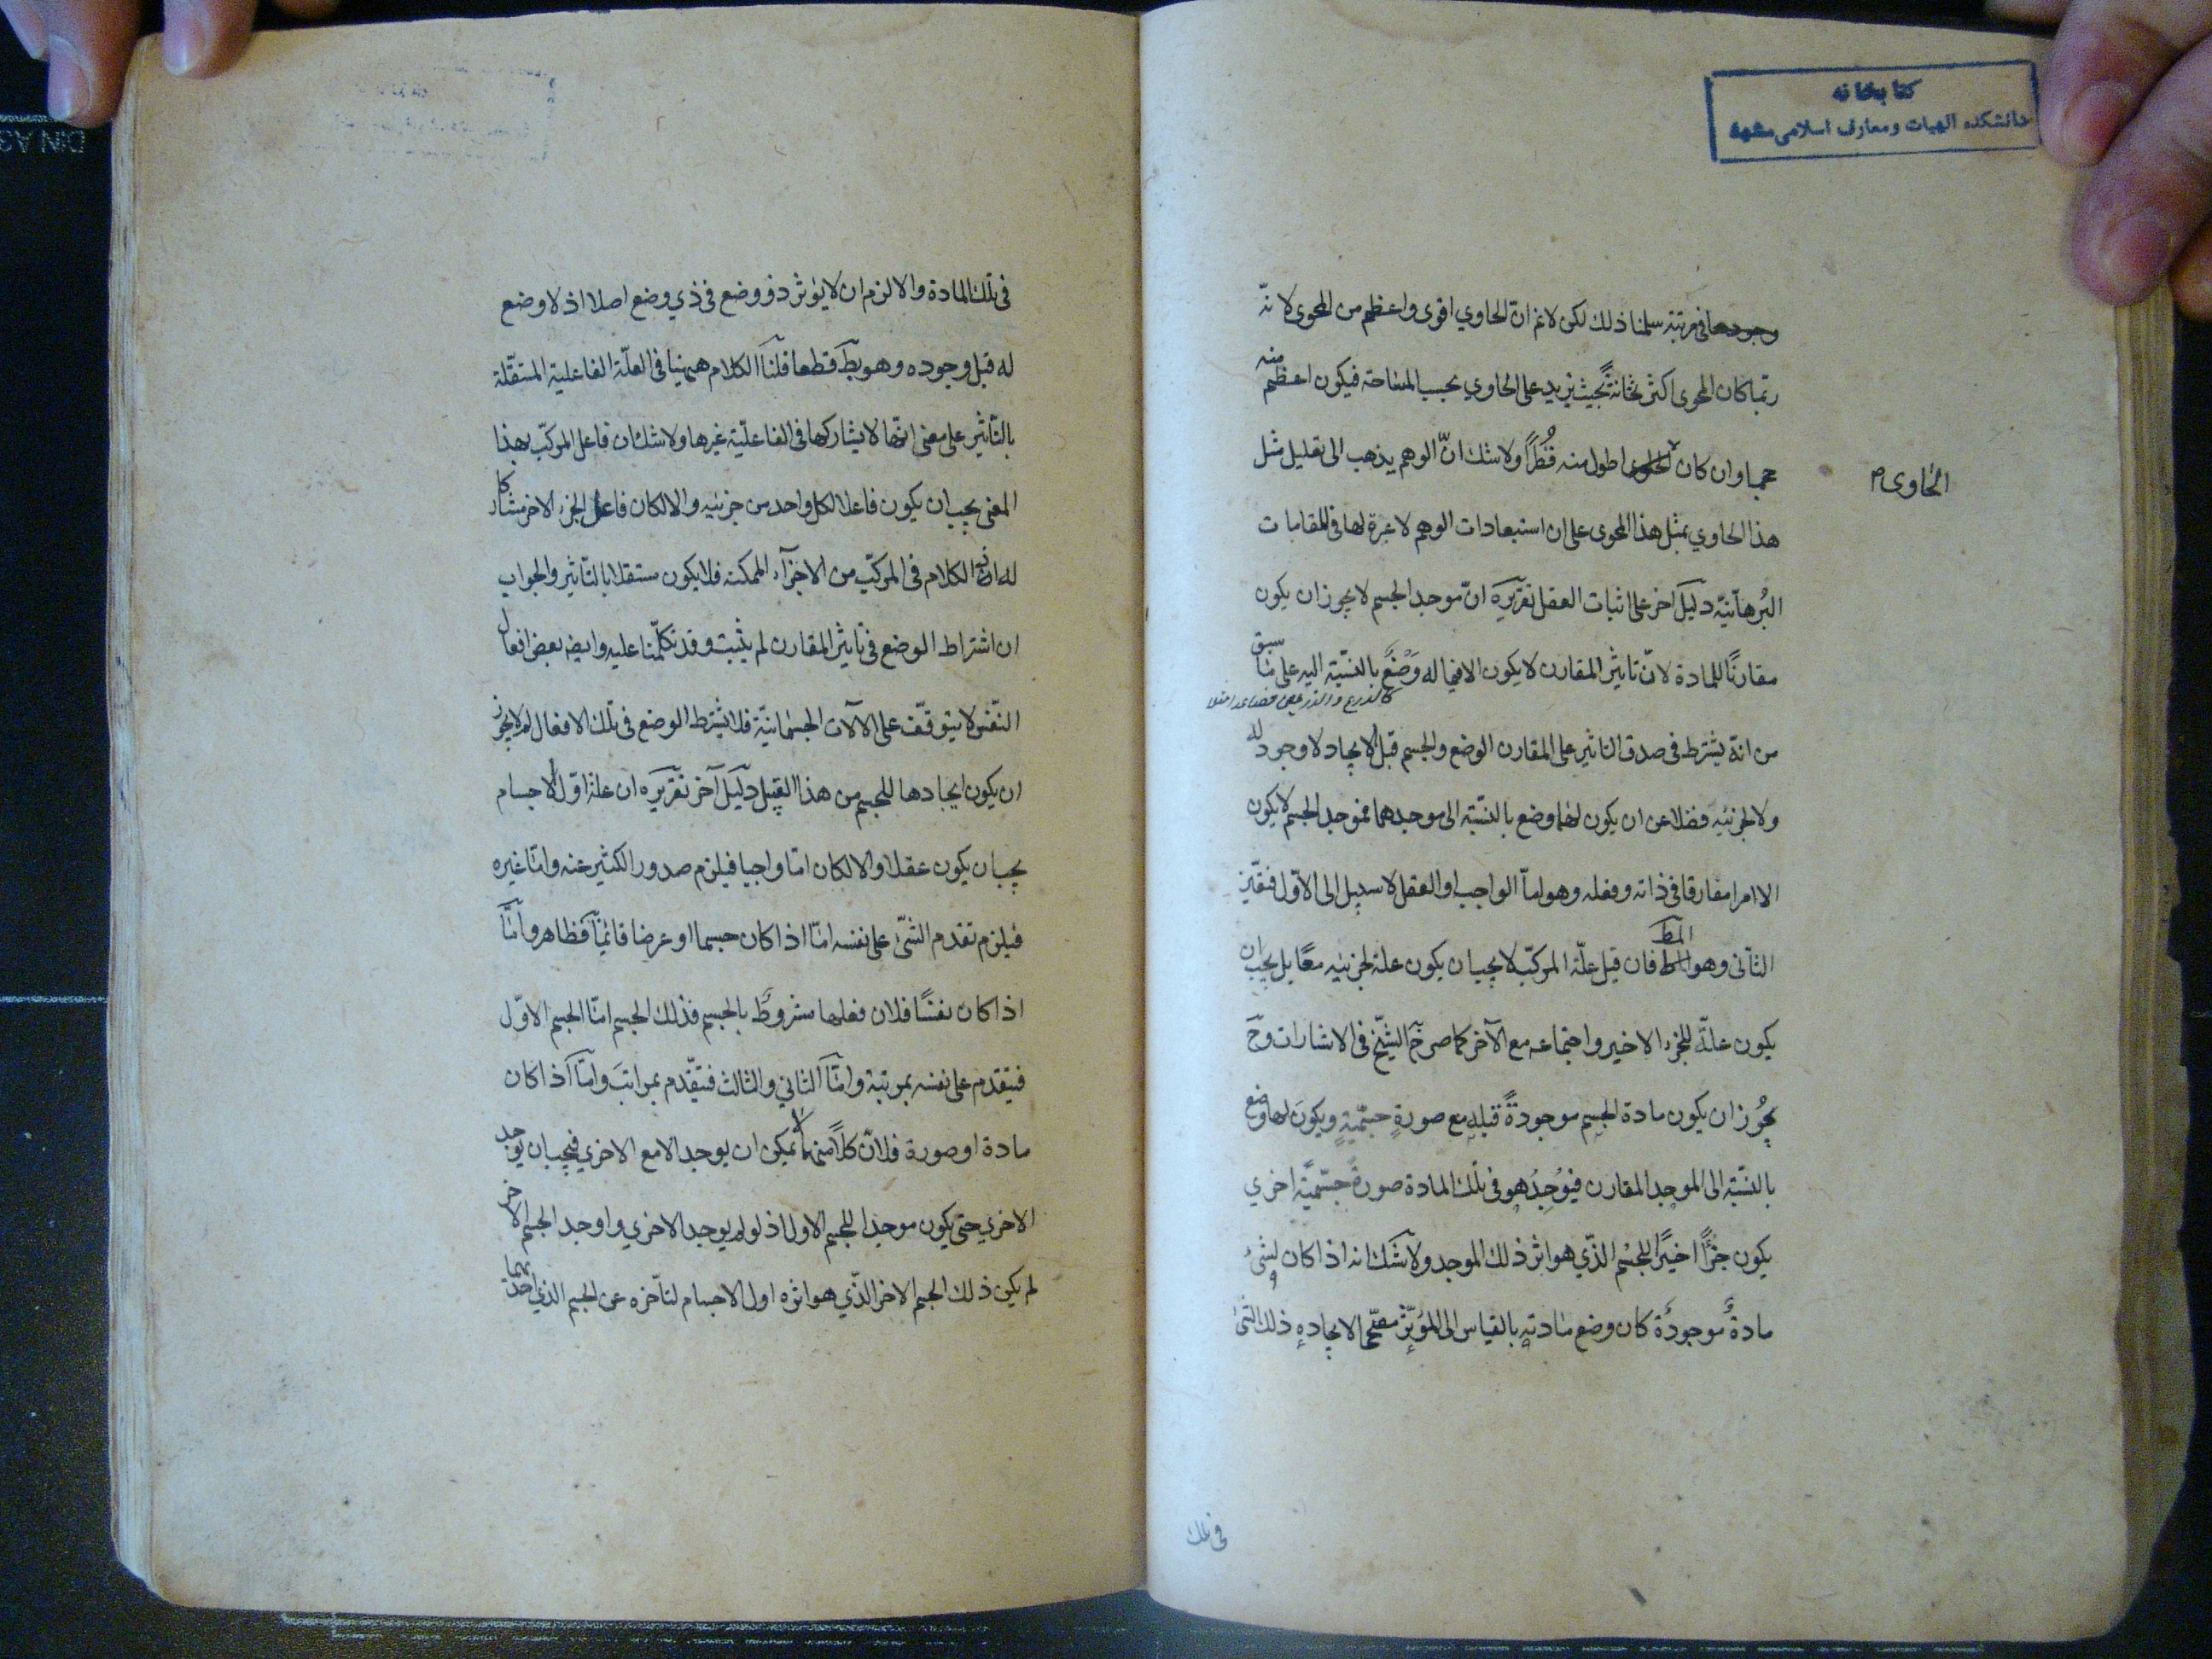 كتابخانه
دانشكده الهيات ومعارف اسلامى مشهد
وجودهما فى مرتبة سلمنا ذلك لكن لا نم ان الحاوي اقوى واعظم من المحوى لانّه
ربّما كان المحوى اكثر ثخانةً بحيث يزيد على الحاوي بحسب المساحة فيكون اعظم منه
حجما وان كان الحاوى اطول منه قُطراً ولا شك انّ الوهم يذهب الى تعليل مثل
الحاوى م
هذا الحاوي بمثل هذا المحوى على ان استبعادات الوهم لا عبرة لها فى المقامات
البُرهانيّة دليل اخر على اثبات العقل تقريره انّ موجد الجسم لا يجوز ان يكون
مقارنًا للمادة لانّ تاثير المقارن لا يكون الا فيما له وَضْعٌ بالنسّبة اليه على ما سبق
من انهّ يشترط فى صدق التاثير على المقارن الوضع والجسم قبل الايجاد لا وجود له
ولا لجزئيه فضلا عن ان يكون لهما وضع بالنسّبة الى موجدهما فموجد الجسم لا يكون
الا امرا مفارقا فى ذاته وفعله وهو امّا الواجب او العقل لا سبيل الى الاوّل فتعّين
الثّانى وهو المط المط فان قيل علّة المركبّ لا يجب ان يكون علة لجزئيه معًا بل يجب ان
يكون علةّ للجزء الاخير واجتماعه مع الآخر كما صرح الشيّخ فى الاشارات وحَ
يجُوز ان يكون مادة الجسِم موجودةً قبلهِ مع صورةٍ جسّميةٍ ويكونَ لها وضع
بالنسّبة الى الموجِد المقارن فيوُجِدُ هو فى تلك المادة صورةً جسّميّة اخري
يكون جزًأ اخيرًا للجسْم الذّي هو اثر ذلك الموجد ولا شَكَ انه اذا كان لشئ
مادةٌ موجودةٌ كان وضع مادتهِ بالقياس الى المؤثرِّ مصحّحا لايجادهِ ذلك الشئ
فى تلك
فى تلك المادة والا لزم ان لا يؤثر ذو وضع فى ذي وضع اصلا اذ لا وضع
له قبل وجوده وهو بطَ قطعا قلنا الكلام ههنا فى العلّة الفاعلية المستقّلة
بالتّاثير على معنى انهّا لا يشاركها فى الفاعليّة غيرها ولا شك ان فاعل المركبّ بهذا
المعنى يجب ان يكون فاعلا لكل واحد من جزئيه والا لكان فاعل الجزء الاخر مشاركا
له اذ الكلام فى المركبّ من الاجزآء الممكنة فلا يكون مستقلا بالتاّثير والجواب
ان اشتراط الوضع فى تاثير المقارن لم يثبت وقد تكلّمنا عليه وايضه بعض افعال
النفّس لا يتوقّف على الآلات الجسمانيّة فلا يشترط الوضع فى تلك الافعال لم لا يجوز
ان يكون ايجادها للجسم من هذا القبيل دليل آخر تقريره ان علة اوّل الاجسام
يجب ان يكون عقلا والا لكان امّا واجبا فيلزم صدور الكثير عنه وامّا غيره
فيلزم تقدم الشّئ على نفسه امّا اذا كان جسما او عرضا قائمّا فظاهر وامّا
اذا كان نفسًا فلان فعلها مشروطٌ بالجسم فذلك الجسم امّا الجسم الاوّل
فيتقدم على نفسه بمرتبة وامّا الثاني والثالث فيتقّدم بمراتبَ وامّا اذا كان
مادة او صورة فلانّ كلاً منهما لا يمكن ان يوجد الا مع الاخري فيجب ان يوجد
الاخري حتى يكون موجدا للجسم الاول اذ لو لم يوجد الاخري واوجد الجسم الاخر
لم يكن ذلك الجسم الاخر الذّي هو اثره اول الاجسام لتاّخره عن الجسم الذي احدهما